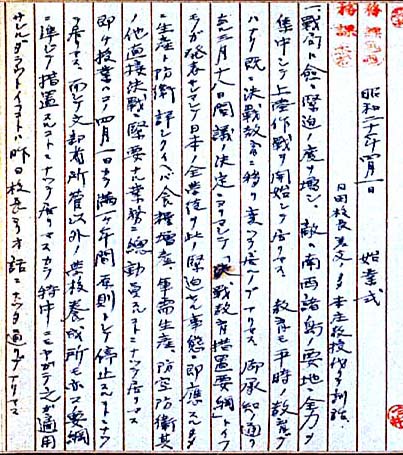 昭和二十年四月一日　始業式
一、戦局ハ愈々緊迫ノ度ヲ増シ、敵ハ南西諸島ノ要地ニ全力ヲ
集中シテ上陸作戦ヲ開始シテ居リマス　教育モ平時ノ教育デ
ハナク既ニ決戦教育ニ移リ変ッテ居ルノデアリマス　御承知ノ通リ
去ル三月十八日閣議ノ決定ニヨリマシテ「決戦教育措置要綱」トイフ
モノガ発表サレマシテ日本ノ全学徒ヲ此ノ緊迫セル事態ニ即應スルタメ
ニ生産ト防衛　詳シクイヘバ食糧増産、軍需生産、防空防衛其
ノ他直接決戦ニ緊要ナル業務ニ總動員スルコトニナッテ居リマス
即チ授業ハコノ四月一日カラ満一ヶ年間原則トシテ停止スルコトニナッ
テ居リマス、而シテ文部省所管以外ノ学校養成所モ亦コノ要綱
ニ準ジテ措置スルコトニナッテ居リマスカラ特中ニモヤガテ之ガ適用
サレルダラウトイフコトハ昨日校長ヨリオ話ニナッタ通リデアリマス